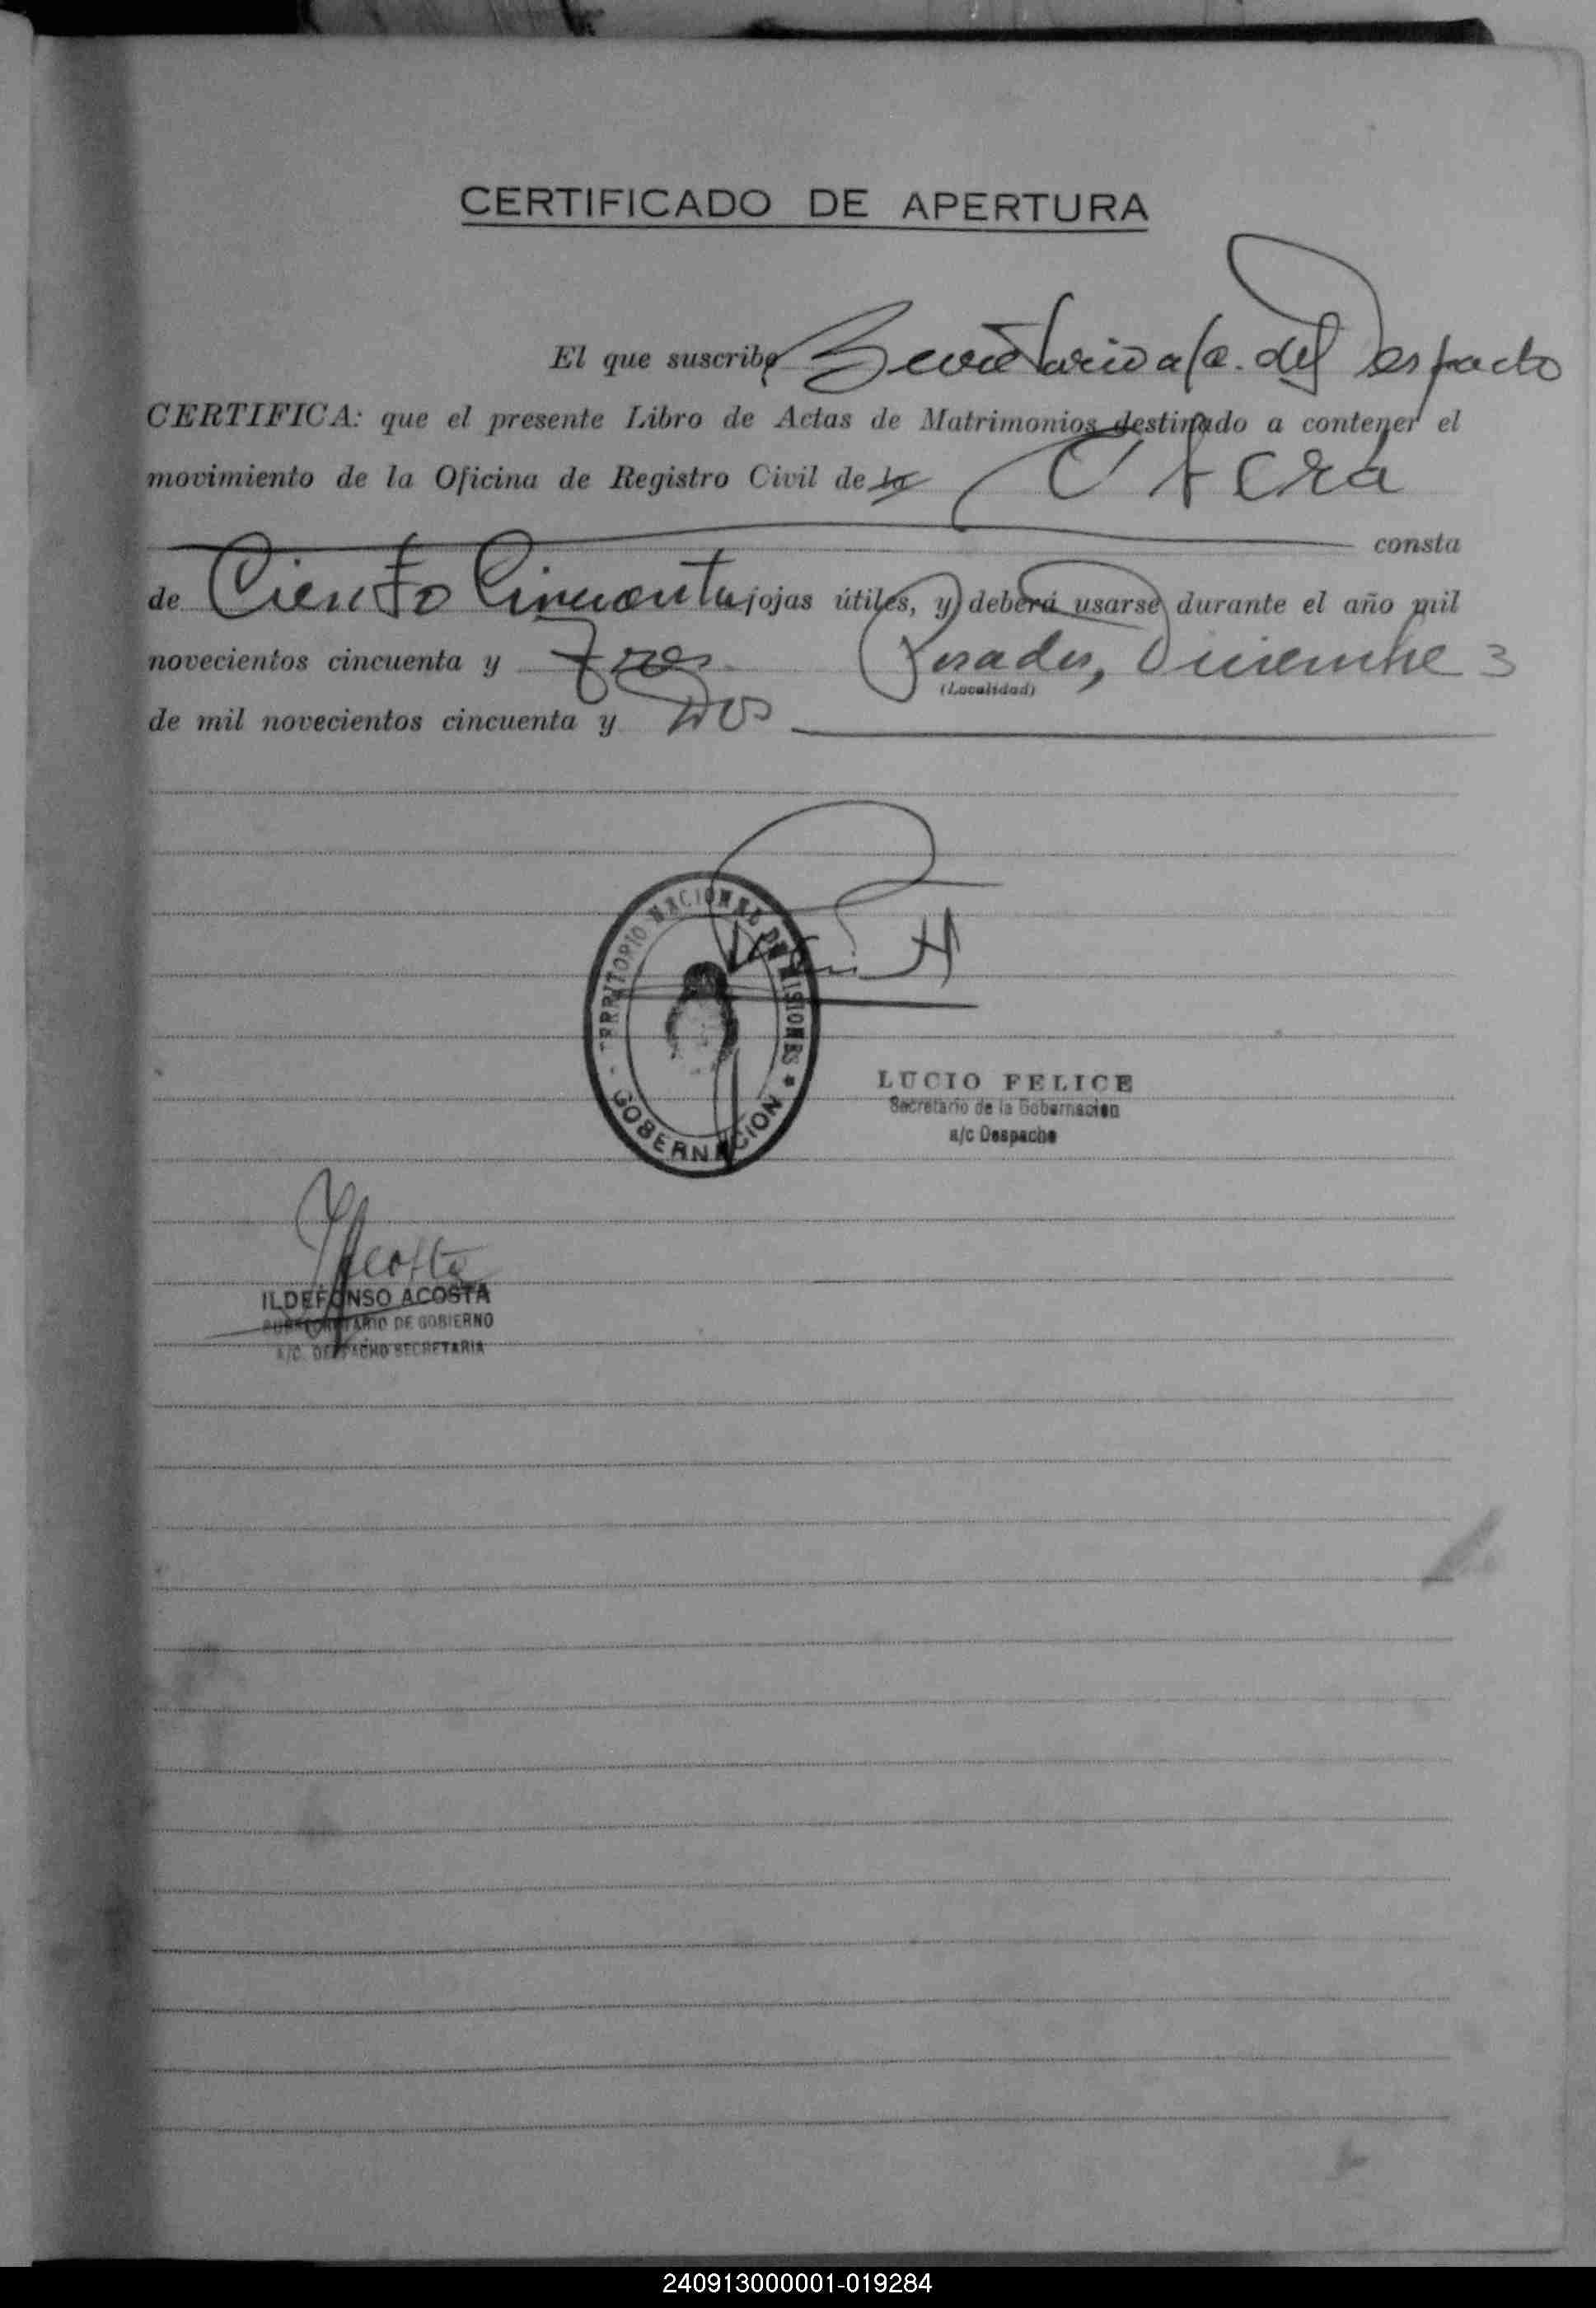 CERTIFICADO DE APERTURA
El que suscribe Secretario a/c. del Despacho
CERTIFICA: que el presente Libro de Actas de Matrimonios destinado a contener el
movimiento de la Oficina de Registro Civil de la
consta
de Ciento Cincuenta fojas útiles, y deberá usarse durante el año mil
novecientos cincuenta y tres Posadas, Diciembre 3
(Localidad)
de mil novecientos cincuenta y Dos
TERRITORIO NACIONAL DE MISIONES
GOBERNACION
LUCIO FELICE
Secretario de la Gobernacion
a/c Despacho
Acosta
ILDEFONSO ACOSTA
SUBSECRETARIO DE GOBIERNO
A/C. DESPACHO SECRETARIA
240913000001-019284